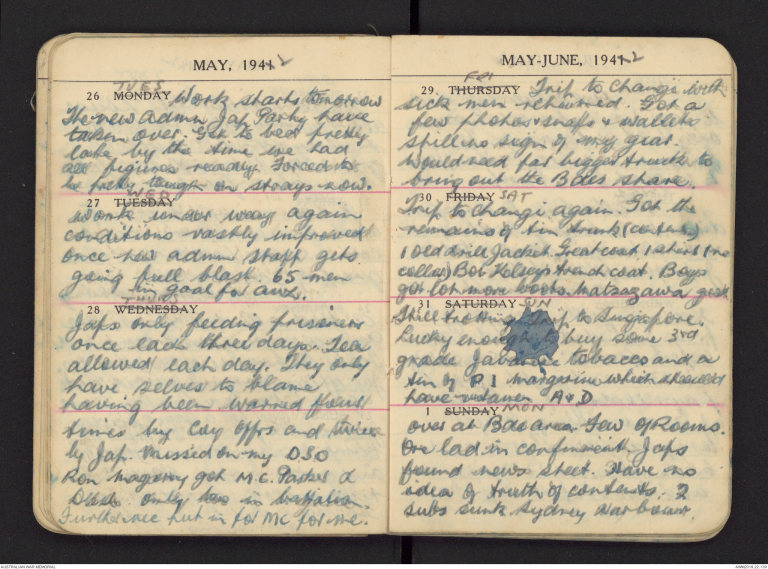 MAY, 1941 2
TUES
26 MONDAY Work starts tomorrow
The new admn Jap Party have
taken over. Get to bed pretty
late by the time we had
all figures ready. Forced to
be pretty tough on strays now.
WED
27 TUESDAY
Work under way again
conditions vastly improved
once new admn staff gets
going full blast. 65 men
in goal for awl.
THURS
28 WEDNESDAY
Japs only feeding prisoners
once each three days. Tea
allowed each day. They only
have selves to blame
having been warned
times by Coy offrs and twice
by Jap. Missed on my DSO
Ron Magarry got M.C. Parker a
DSO only two in battalion.
Furthermore put in for MC for me.
MAY-JUNE, 1941 2
FRI
29 THURSDAY Trip to Changi with
sick men returned. Got a
few photos & snaps & wallets
still no sign of my gear.
Would need far bigger truck to
bring out the Bdes share.
30 FRIDAY SAT
Trip to Changi again. Got the
remains of tin trunk (contents)
1 old drill Jacket Greatcoat 1 shirt (no
collar) Bob Kelseys trench coat. Boys
got lot more boots. Matsazawa good.
31 SATURDAY SUN
Still trotting Trip to Singapore.
Lucky enough to buy some 3rd
grade Javanese tobacco and a
tin of P I margarine which should
have vitamen A & D
1 SUNDAY MON
over at Bde area few of Rooms.
One lad in confinement. Japs
found news sheet. Have no
idea of truth of contents. 2
subs sunk Sydney Harbour.
AUSTRALIAN WAR MEMORIAL